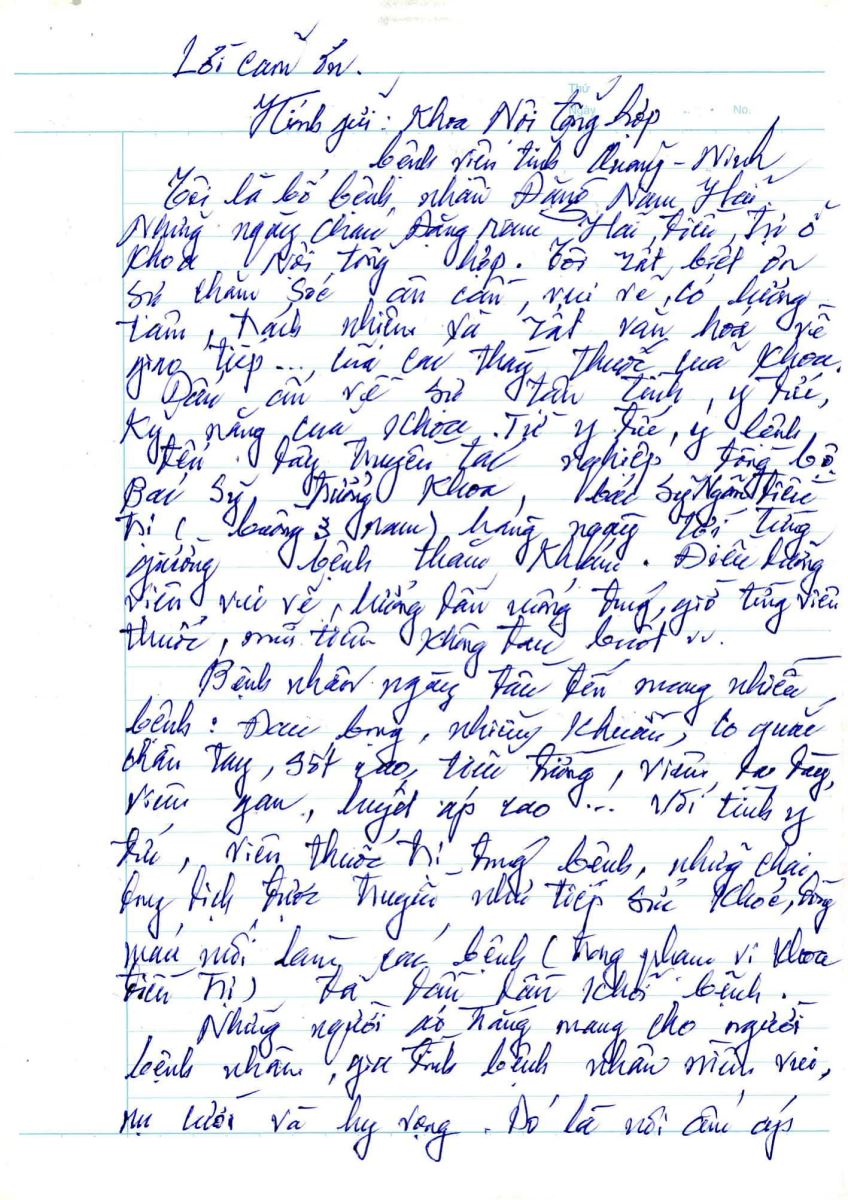 Lời cảm ơn.
Thứ
Ngày No.
Kính gửi: Khoa Nội tổng hợp
bệnh viện tỉnh Quảng-Ninh
Tôi là bố bệnh nhân Đặng Nam Hải
Những ngày cháu Đặng Nam Hải điều trị ở
Khoa Nội tổng hợp. Tôi rất biết ơn
sự chăm sóc ân cần, vui vẻ, có lương
tâm, trách nhiệm và rất văn hoá về
giao tiếp..., của các thầy thuốc của Khoa.
Dấu ấn về sự tận tình, y đức,
kỹ năng của Khoa. Từ y đức, y lệnh,
đến dây truyền tác nghiệp đồng bộ
Bác sỹ trưởng Khoa, bác sỹ Ngân điều
trị (buồng 3 nam) hàng ngày tới từng
giường bệnh thăm khám. Điều dưỡng
viên vui vẻ, hướng dẫn uống đúng giờ từng viên
thuốc, mũi tiêm không đau buốt vv.
Bệnh nhân ngày đầu đến mang nhiều
bệnh: Đau bụng, nhiễm khuẩn, co quắp
chân tay, sốt cao, tiểu đường, viêm dạ dày,
viêm gan, huyết áp cao... Với tình y
đức, viên thuốc trị đúng bệnh, những chai
dung dịch được truyền như tiếp sức khoẻ, dòng
máu mới làm các bệnh (trong phạm vi Khoa
điều trị) đã dần dần khỏi bệnh.
Những người áo trắng mang cho người
bệnh nhân, gia đình bệnh nhân niềm vui,
nụ cười và hy vọng. Đó là nơi ấm áp